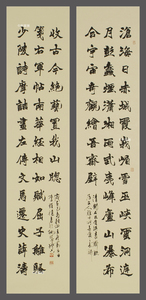 滄海日赤城霞峨嵋雪巫峽雲洞庭
月彭蠡煙瀟湘雨武夷峰廬山瀑布
合宇宙奇觀繪吾齋壁
少陵詩摩詰畫左傳文馬遷史薛濤
箋右軍帖南華經相如賦屈子離騷
收古今絕藝置我山窗